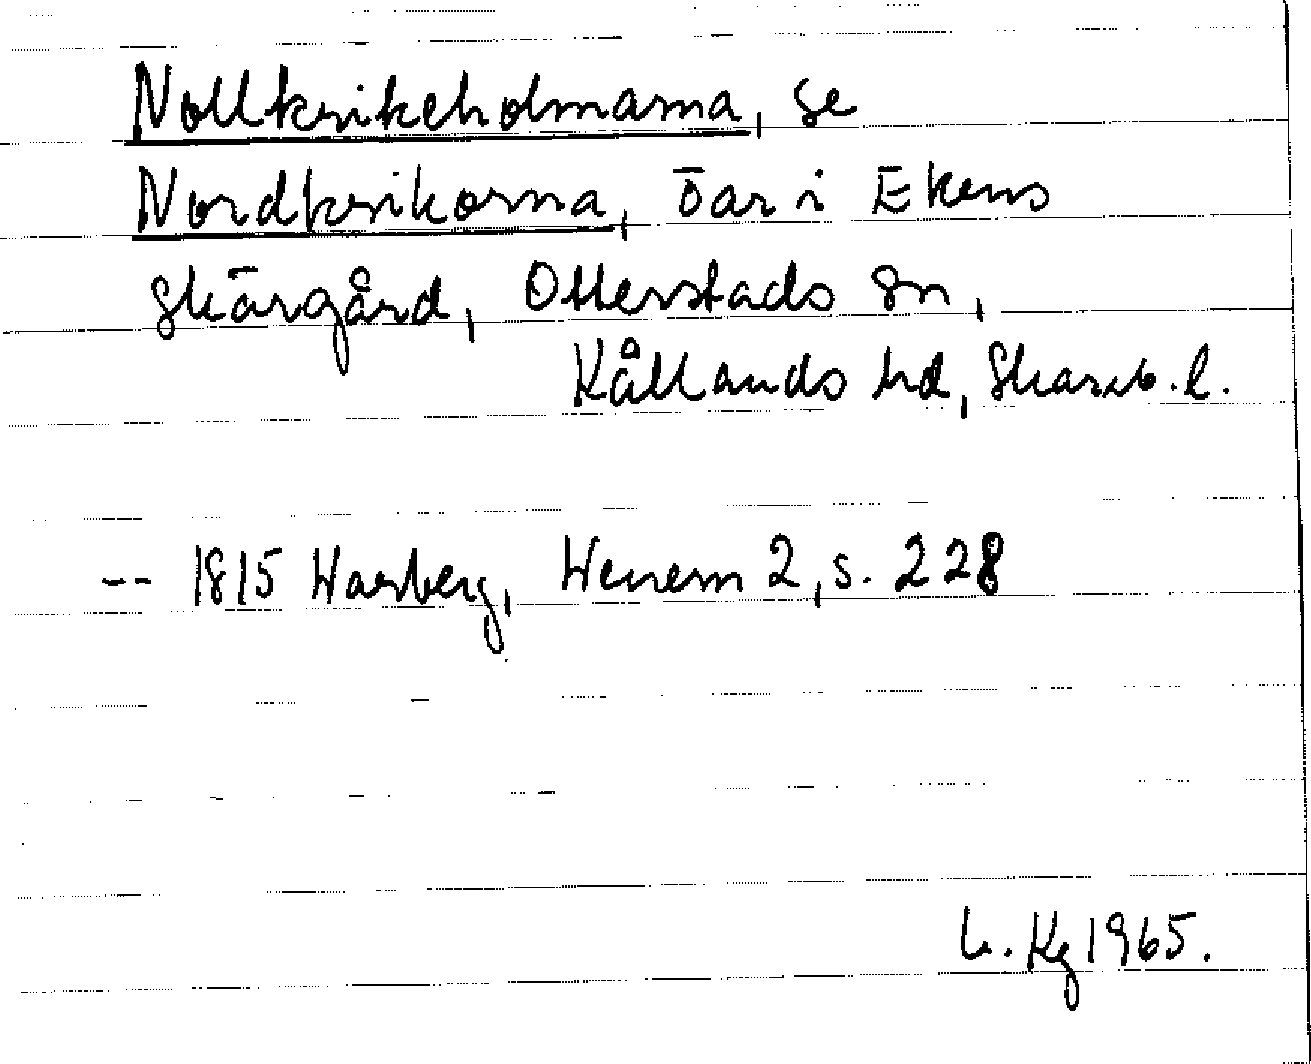 Nollkrikeholmarna, se
Nordkrikorna, öar i Ekens
skärgård, Otterstads sn,
Kållands hd, Skarab. l.
-- 1815 Warberg, Wenern 2, s. 228
L. Kg 1965.